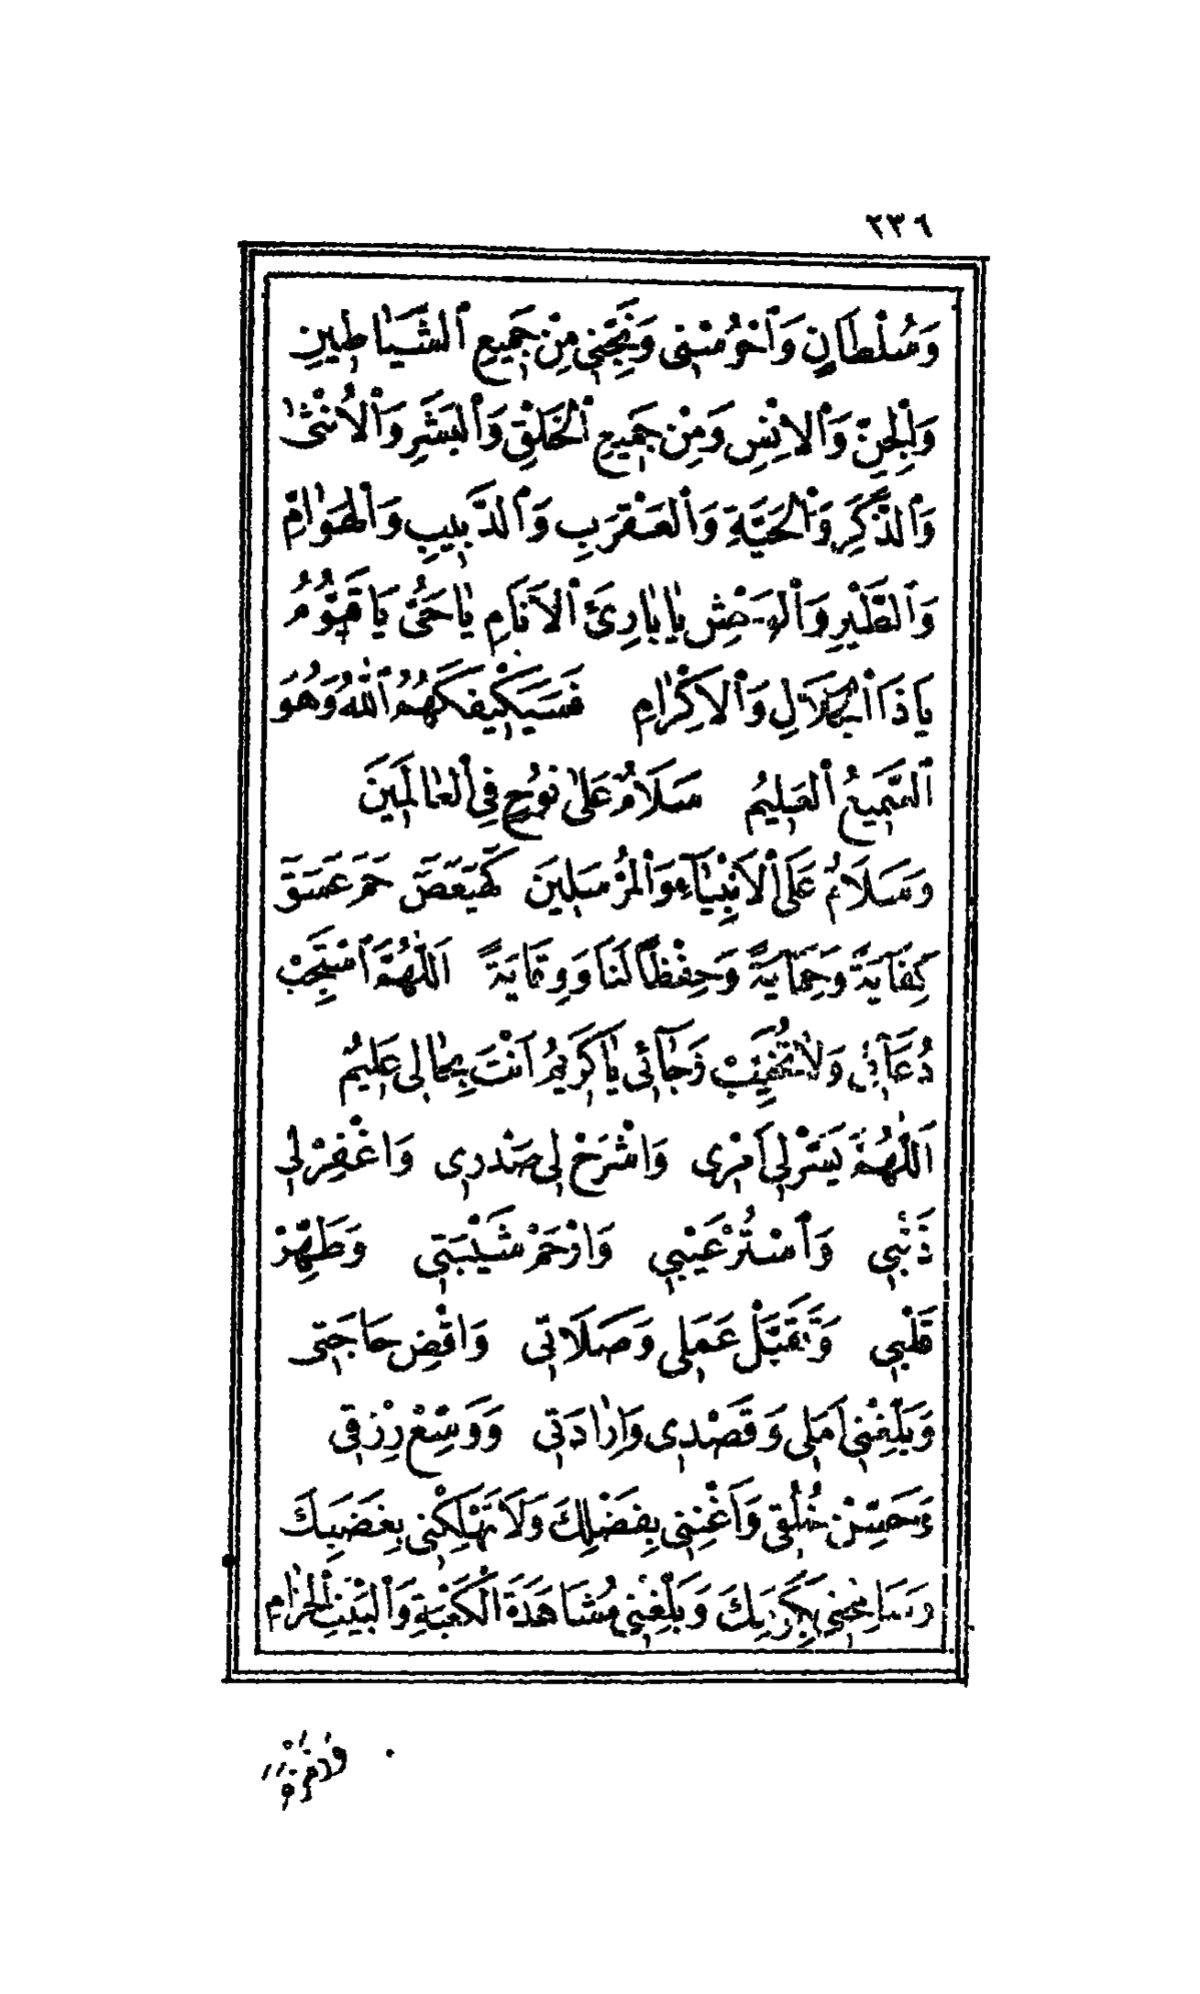 ٢٣٦
وَسُلْطَانٍ وَٱحْرُسْنِي وَنَجِّنِي مِنْ جَمِيعِ ٱلشَّيَاطِينِ
وَٱلْجِنِّ وَٱلْاِنْسِ وَمِنْ جَمِيعِ ٱلْخَلْقِ وَٱلْبَشَرِ وَٱلْاُنْثٰى
وَٱلذَّكَرِ وَٱلْحَيَّةِ وَٱلْعَقْرَبِ وَٱلدَّبِيبِ وَٱلْهَوَامِّ
وَٱلطَّيْرِ وَٱلْوَحْشِ يَا بَارِئَ ٱلْاَنَامِ يَا حَيُّ يَا قَيُّومُ
يَا ذَا ٱلْجَلَالِ وَٱلْاِكْرَامِ فَسَيَكْفِيكَهُمُ ٱللّٰهُ وَهُوَ
ٱلسَّمِيعُ ٱلْعَلِيمُ سَلَامٌ عَلٰى نُوحٍ فِي ٱلْعَالَمِينَ
وَسَلَامٌ عَلَى ٱلْاَنْبِيَاءِ وَٱلْمُرْسَلِينَ كٓهٰيٰعٓصٓ حٰمٓ عٓسٓقٓ
كِفَايَةً وَحِمَايَةً وَحِفْظًا لَنَا وَوِقَايَةً اَللّٰهُمَّ ٱسْتَجِبْ
دُعَآئِي وَلَا تُخَيِّبْ رَجَآئِي يَا كَرِيمُ اَنْتَ بِحَالِي عَلِيمٌ
اَللّٰهُمَّ يَسِّرْ لِي اَمْرِي وَاشْرَحْ لِي صَدْرِي وَاغْفِرْ لِي
ذَنْبِي وَٱسْتُرْ عَيْبِي وَارْحَمْ شَيْبَتِي وَطَهِّرْ
قَلْبِي وَتَقَبَّلْ عَمَلِي وَصَلَاتِي وَاقْضِ حَاجَتِي
وَبَلِّغْنِي اَمَلِي وَقَصْدِي وَاِرَادَتِي وَوَسِّعْ رِزْقِي
وَحَسِّنْ خُلُقِي وَاَغْنِنِي بِفَضْلِكَ وَلَا تُهْلِكْنِي بِغَضَبِكَ
وَسَامِحْنِي بِكَرَمِكَ وَبَلِّغْنِي مُشَاهَدَةَ الْكَعْبَةِ وَٱلْبَيْتِ ٱلْحَرَامِ